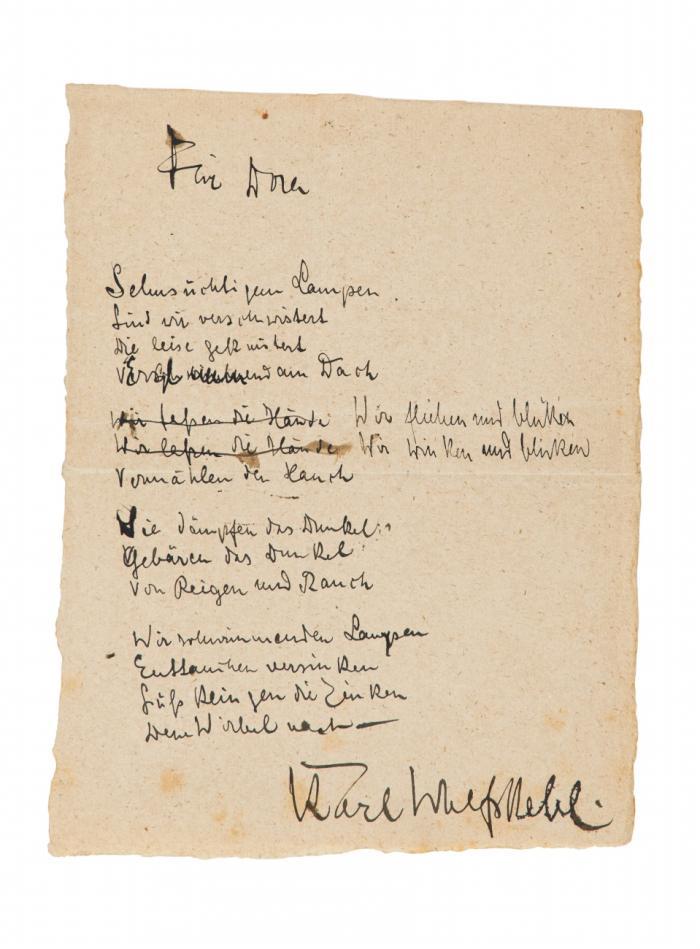 Für Dora
Sehnsüchtigen Lampen
Sind wir verschwistert
Die leise geknistert
am Dach
Wir fassen die Hände Wir fliehen und blühen
Wir lassen die Hände Wir winken und blinken
Vermählen den Hauch
Sie dämpfen das Dunkel:
Gebären das Dunkel
Von Reigen und Rauch
Wir schwimmenden Lampen
Enttauchen versinken
Süß klingen die Zinken
Dem Wirbel nach —
Karl Wolfskehl.